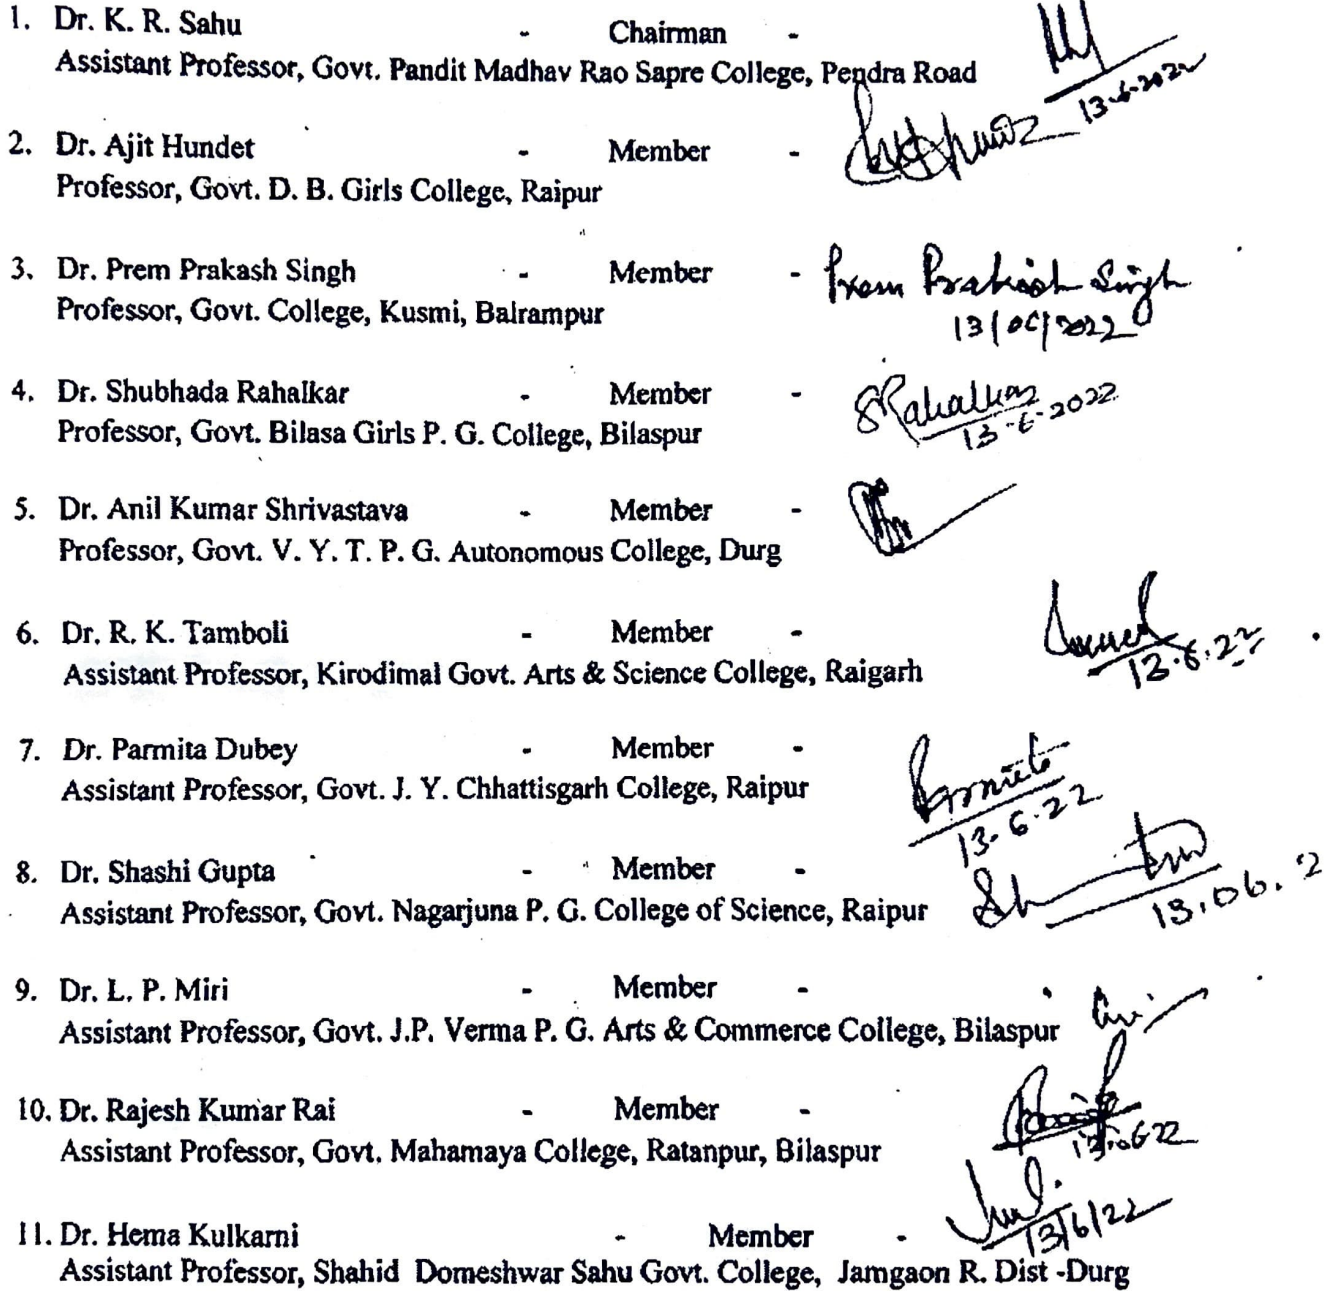 1. Dr. K. R. Sahu - Chairman -
Assistant Professor, Govt. Pandit Madhav Rao Sapre College, Pendra Road
13-6-2022
2. Dr. Ajit Hundet - Member -
Professor, Govt. D. B. Girls College, Raipur
3. Dr. Prem Prakash Singh - Member - Prem Prakash Singh
Professor, Govt. College, Kusmi, Balrampur
13/06/2022
4. Dr. Shubhada Rahalkar - Member - SRahalkar
13-6-2022
Professor, Govt. Bilasa Girls P. G. College, Bilaspur
5. Dr. Anil Kumar Shrivastava - Member -
Professor, Govt. V. Y. T. P. G. Autonomous College, Durg
6. Dr. R. K. Tamboli - Member -
13.6.22
Assistant Professor, Kirodimal Govt. Arts & Science College, Raigarh
7. Dr. Parmita Dubey - Member -
Assistant Professor, Govt. J. Y. Chhattisgarh College, Raipur
13.6.22
8. Dr. Shashi Gupta - Member -
Assistant Professor, Govt. Nagarjuna P. G. College of Science, Raipur
13.06.2
9. Dr. L. P. Miri - Member -
Assistant Professor, Govt. J.P. Verma P. G. Arts & Commerce College, Bilaspur
10. Dr. Rajesh Kumar Rai - Member -
Assistant Professor, Govt. Mahamaya College, Ratanpur, Bilaspur
11. Dr. Hema Kulkarni - Member -
13/6/22
Assistant Professor, Shahid Domeshwar Sahu Govt. College, Jamgaon R. Dist -Durg